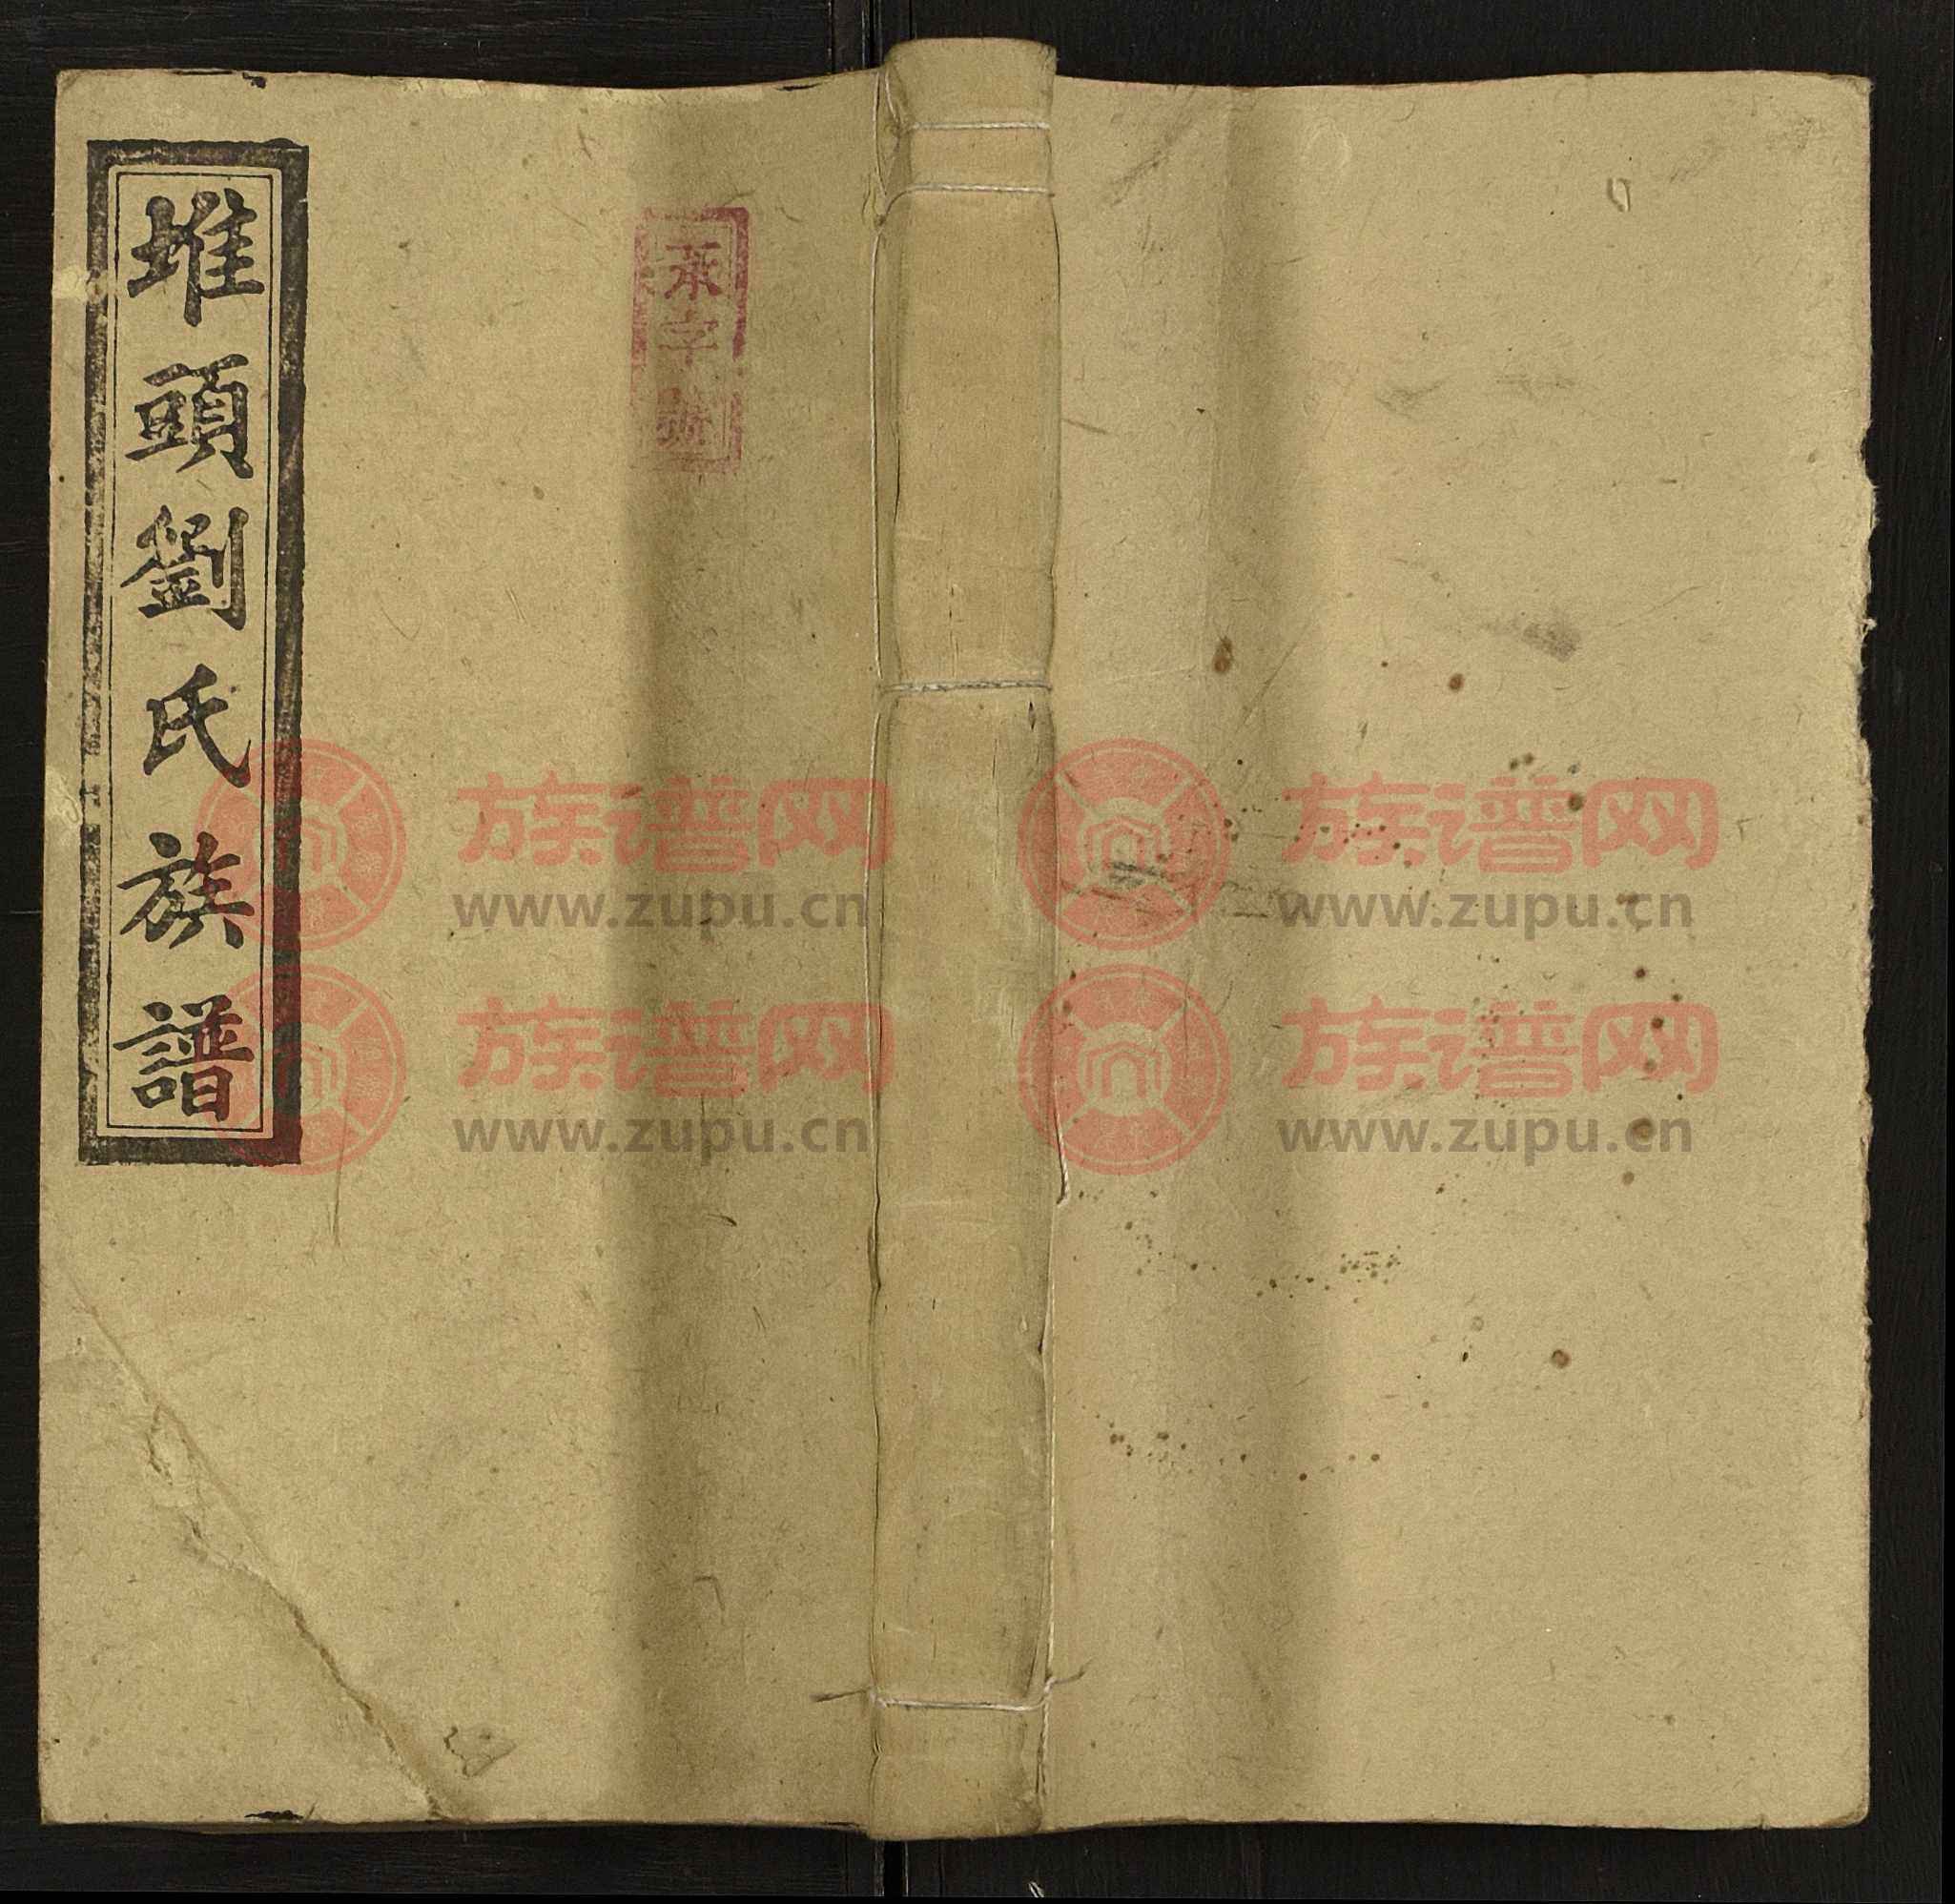 堆頭劉氏族譜
字號
族谱网
www.zupu.cn
族谱网
www.zupu.cn
族谱网
www.zupu.cn
族谱网
www.zupu.cn